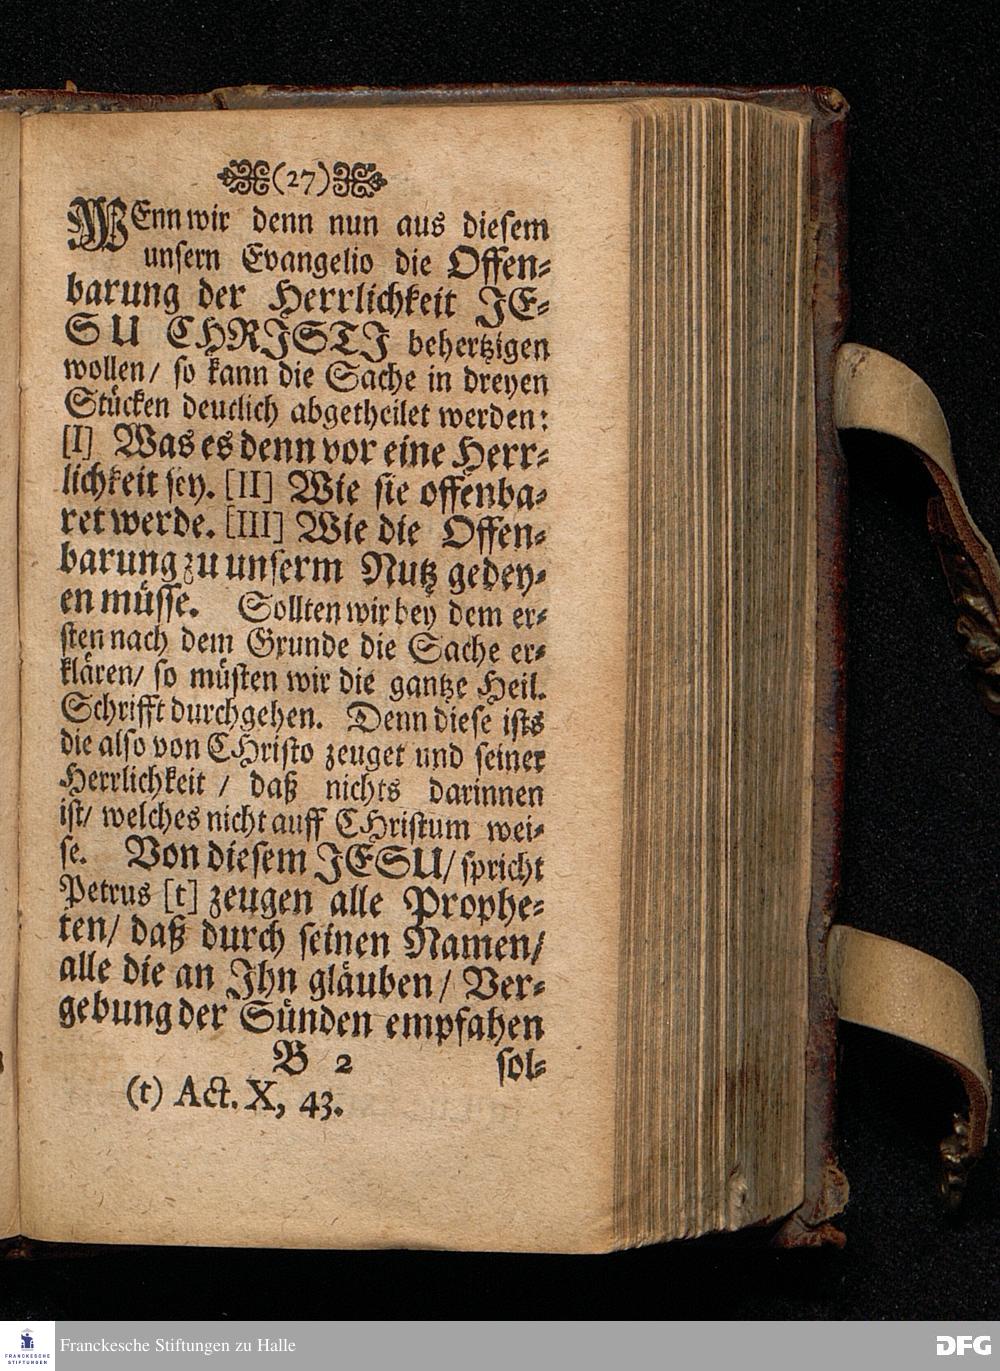 (27)
WEnn wir denn nun aus diesem
unsern Evangelio die Offen-
barung der Herrlichkeit JE-
SU CHRISTI behertzigen
wollen/ so kann die Sache in dreyen
Stücken deutlich abgetheilet werden:
[I] Was es denn vor eine Herr-
lichkeit sey. [II] Wie sie offenba-
ret werde. [III] Wie die Offen-
barung zu unserm Nutz gedey-
en müsse. Sollten wir bey dem er-
sten nach dem Grunde die Sache er-
klären/ so müsten wir die gantze Heil.
Schrifft durchgehen. Denn diese ists
die also von CHristo zeuget und seiner
Herrlichkeit / daß nichts darinnen
ist/ welches nicht auff CHristum wei-
se. Von diesem JESU/ spricht
Petrus [t] zeugen alle Prophe-
ten/ daß durch seinen Namen/
alle die an Jhn gläuben/ Ver-
gebung der Sünden empfahen
B 2 sol-
(t) Act. X, 43.
FRANCKESCHE
STIFTUNGEN
Franckesche Stiftungen zu Halle
DFG